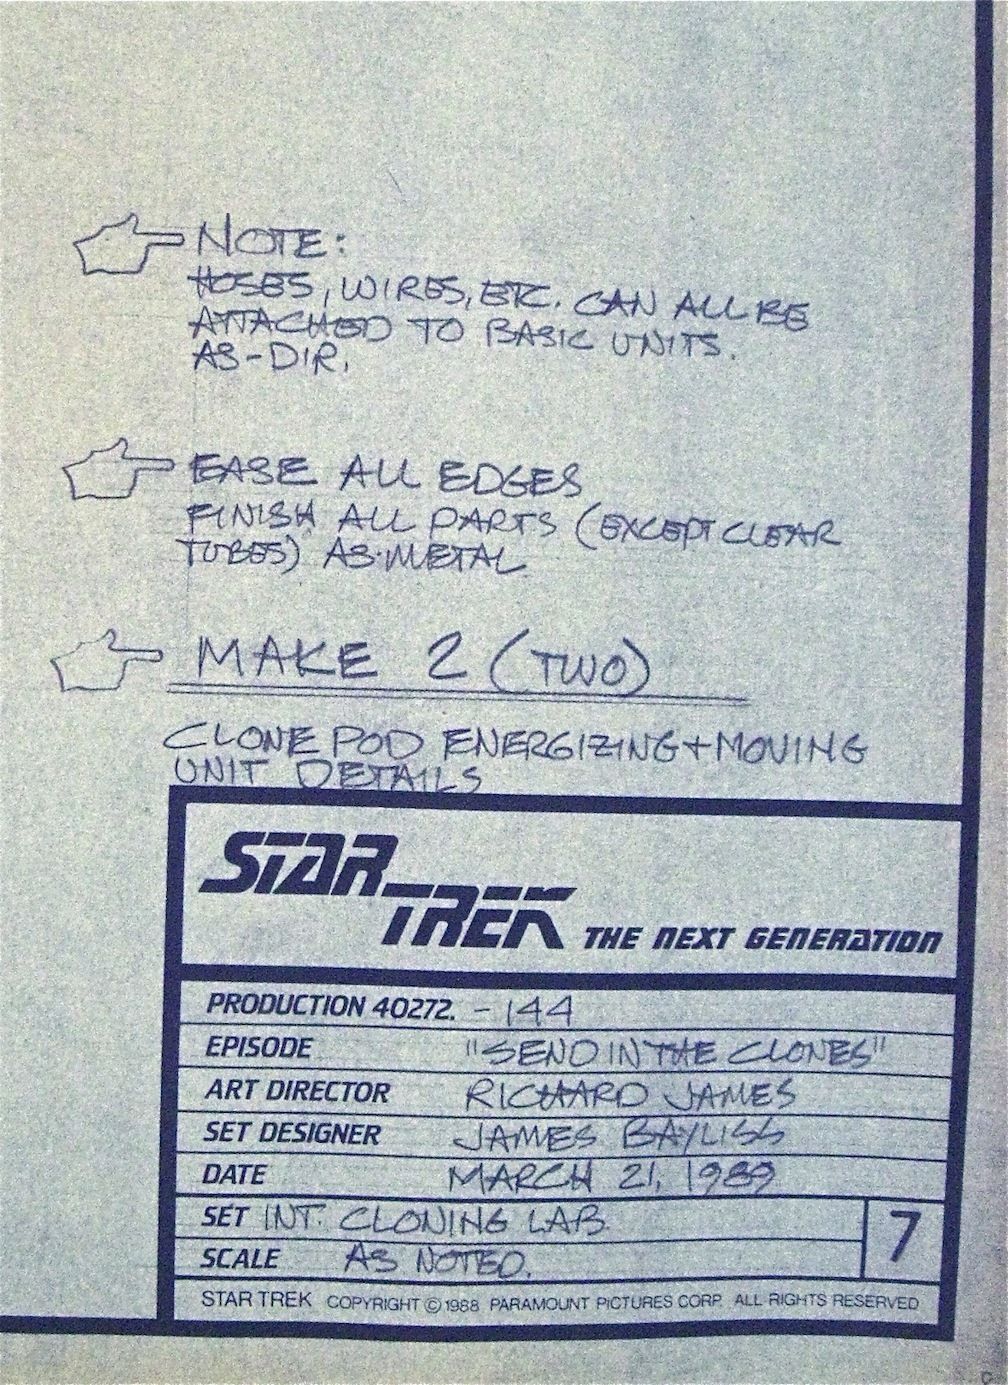 NOTE:
HOSES, WIRES, ETC. CAN ALL BE
ATTACHED TO BASIC UNITS.
AS-DIR.
EASE ALL EDGES
FINISH ALL PARTS (EXCEPT CLEAR
TUBES) AS METAL
MAKE 2 (TWO)
CLONE POD ENERGIZING + MOVING
UNIT DETAILS
STAR
TREK THE NEXT GENERATION
PRODUCTION 40272. - 144
EPISODE "SEND IN THE CLONES"
ART DIRECTOR RICHARD JAMES
SET DESIGNER JAMES BAYLISS
DATE MARCH 21, 1989
SET INT. CLONING LAB.
7
SCALE AS NOTED.
STAR TREK COPYRIGHT © 1988 PARAMOUNT PICTURES CORP. ALL RIGHTS RESERVED